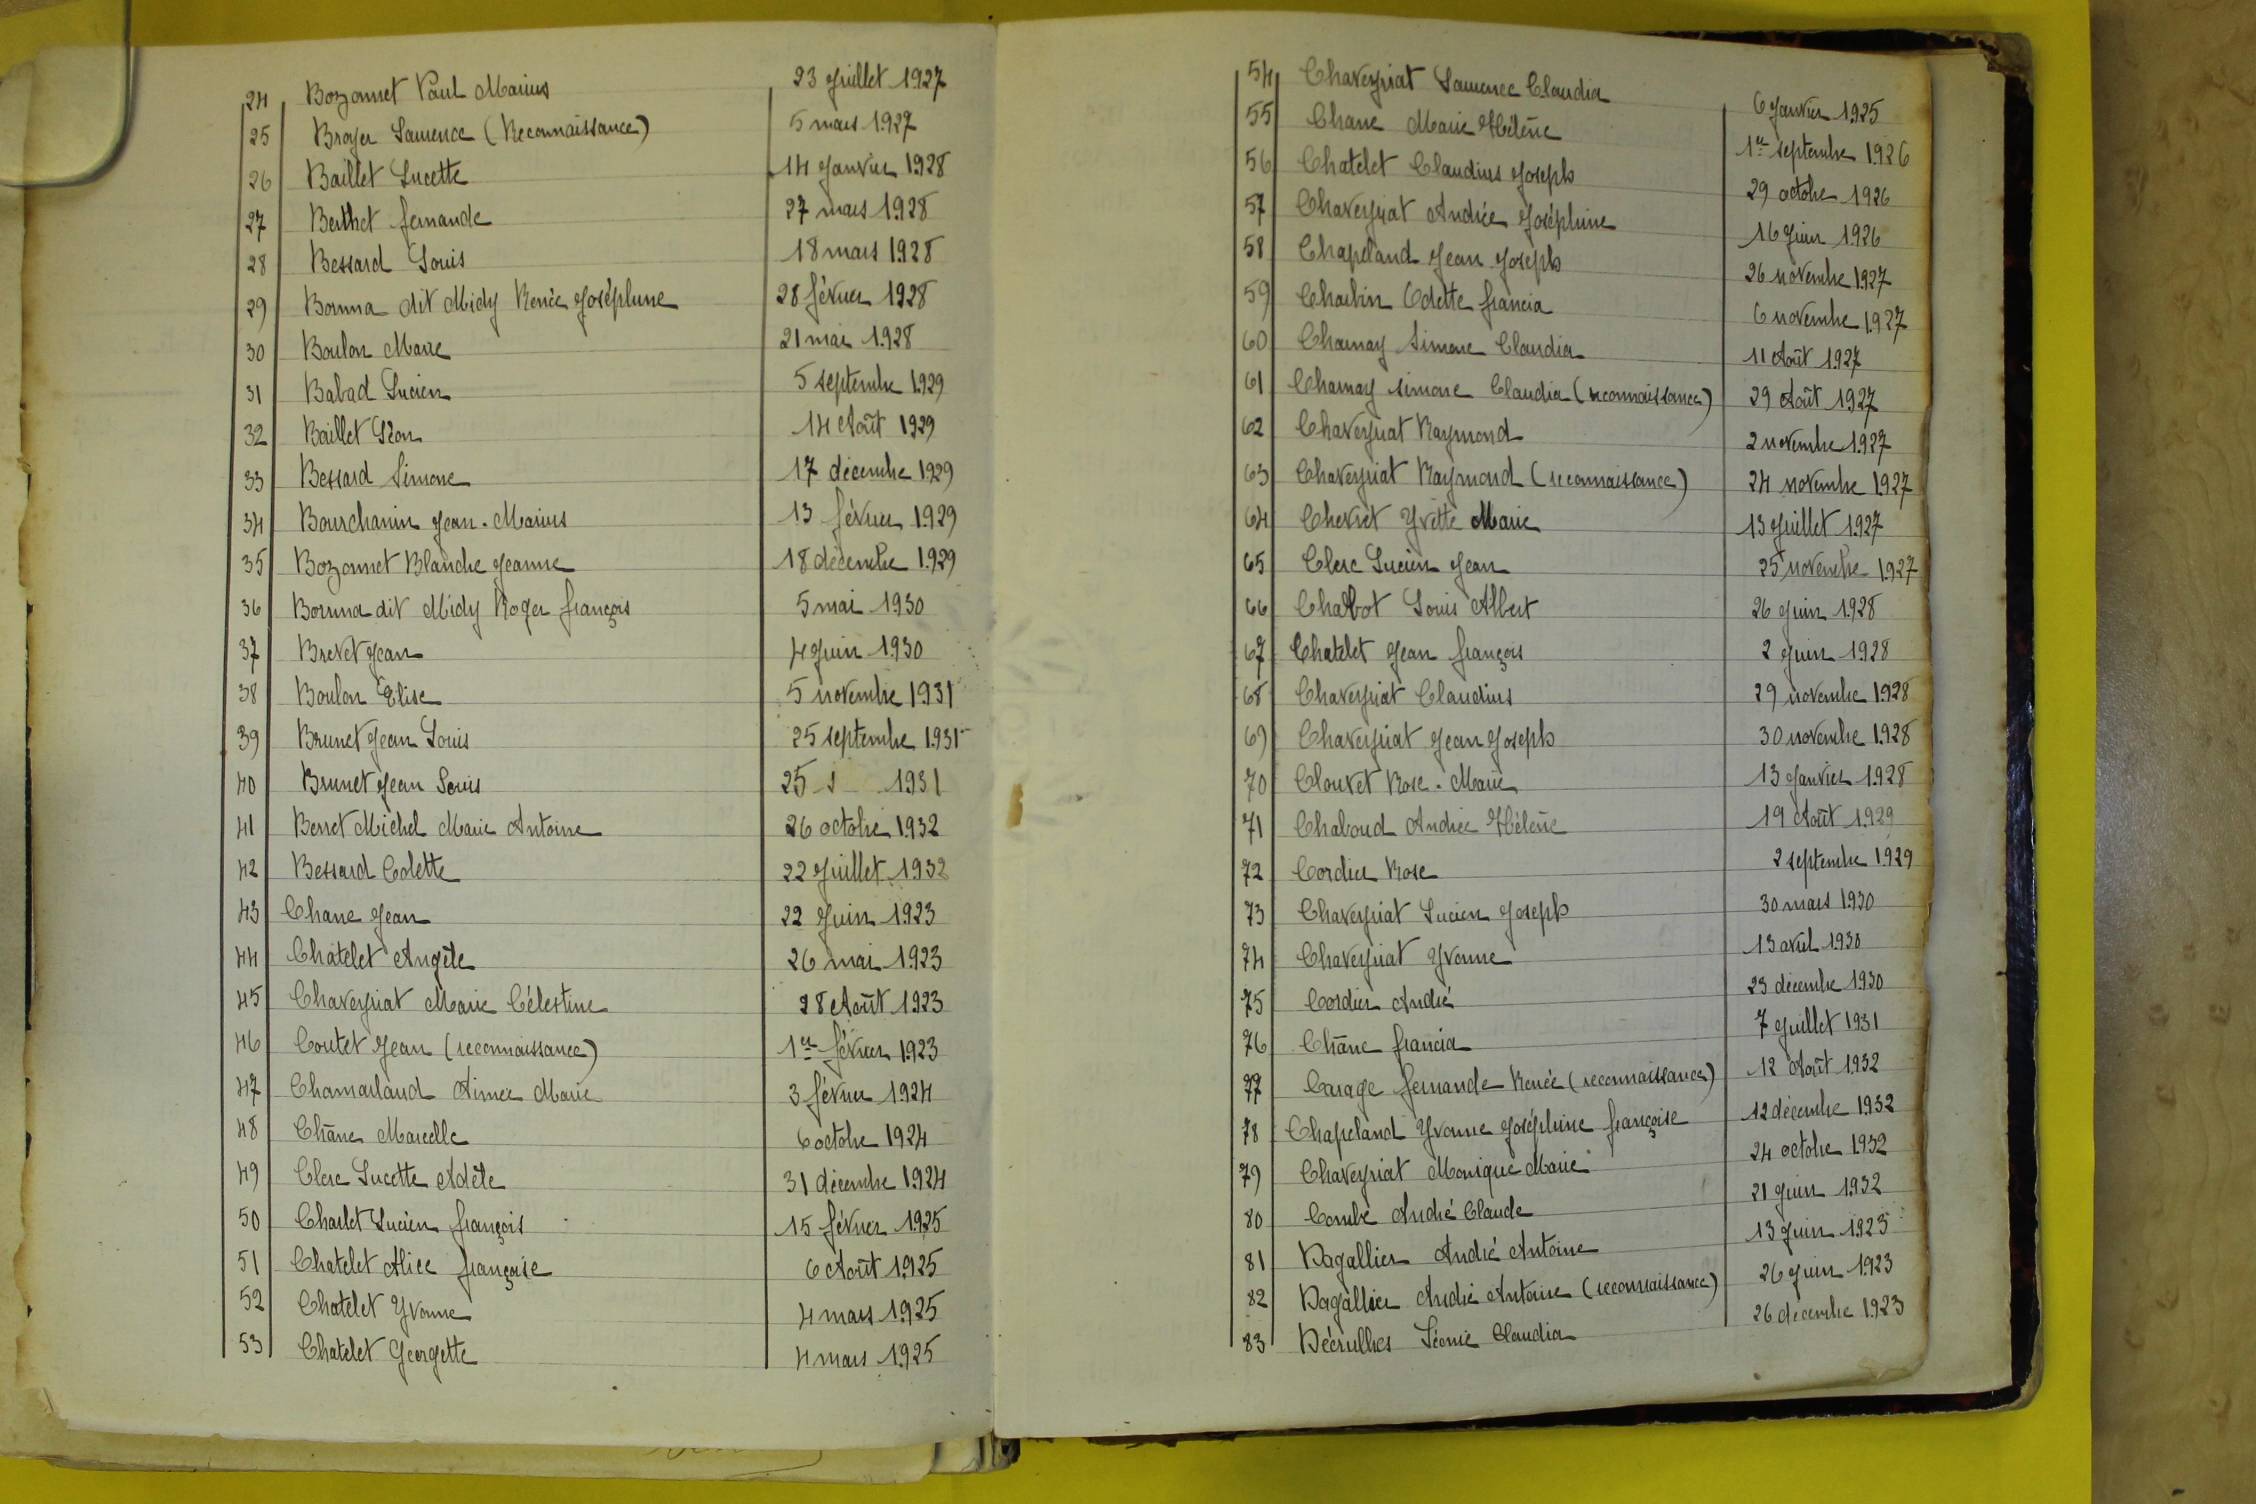 24 Bozonnet Paul Marius 23 Juillet 1927
25 Broyer Laurence (Reconnaissance) 5 mars 1927
26 Baillet Lucette 14 Janvier 1928
27 Berthet fernande 27 mars 1928
28 Bessard Louis 18 mars 1928
29 Bonna dit Midy Renée Joséphine 28 février 1928
30 Boulon Marie 21 mai 1928
31 Babad Lucien 5 septembre 1929
32 Baillet Léon 14 Août 1929
33 Bessard Simone 17 décembre 1929
34 Bourchanin Jean-Marius 13 février 1929
35 Bozonnet Blanche Jeanne 18 décembre 1929
36 Bonna dit Midy Roger françois 5 mai 1930
37 Brevet Jean 4 Juin 1930
38 Boulon Elise 5 novembre 1931
39 Brunet Jean Louis 25 septembre 1931
40 Brunet Jean Louis 25 s 1931
41 Berret Michel Marie Antoine 26 octobre 1932
42 Bessard Colette 22 Juillet 1932
43 Chane Jean 22 Juin 1923
44 Châtelet Angèle 26 mai 1923
45 Chaveyriat Marie Célestine 28 Août 1923
46 Coutet Jean (reconnaissance) 1er février 1923
47 Chamarlaud Aimée Marie 3 février 1924
48 Châne Marcelle 6 octobre 1924
49 Clerc Lucette Adèle 31 décembre 1924
50 Charlet Lucien françois 15 février 1925
51 Chatelet Alice françoise 6 Août 1925
52 Chatelet Yvonne 4 mars 1925
53 Chatelet Georgette 4 mars 1925
54 Chaveyriat Laurence Claudia 6 Janvier 1925
55 Chane Marie Hélène 1er septembre 1926
56 Chatelet Claudius Joseph 29 octobre 1926
57 Chaveyriat Andrée Joséphine 16 Juin 1926
58 Chapeland Jean Joseph 26 novembre 1927
59 Charbin Odette francia 6 novembre 1927
60 Charnay Simone Claudia 11 Août 1927
61 Charnay simone Claudia (reconnaissance) 29 Août 1927
62 Chaveyriat Raymond 2 novembre 1927
63 Chaveyriat Raymond (reconnaissance) 24 novembre 1927
64 Chevret Yvette Marie 13 Juillet 1927
65 Clerc Lucien Jean 25 novembre 1927
66 Chabot Louis Albert 26 Juin 1928
67 Chatelet Jean françois 2 Juin 1928
68 Chaveyriat Claudius 29 novembre 1928
69 Chaveyriat Jean Joseph 30 novembre 1928
70 Clouvet Rose-Marie 13 Janvier 1928
71 Chaboud Andrée Hélène 19 Août 1929
72 Cordier Rose 2 septembre 1929
73 Chaveyriat Lucien Joseph 30 mars 1930
74 Chaveyriat Yvonne 13 avril 1930
75 Cordier André 23 décembre 1930
76 Châne francia 7 Juillet 1931
77 Carage fernande Renée (reconnaissance) 12 Août 1932
78 Chapeland Yvonne Joséphine françoise 12 décembre 1932
79 Chaveyriat Monique Marie 24 octobre 1932
80 Combe André Claude 21 Juin 1932
81 Dagallier André Antoine 13 Juin 1923
82 Dagallier André Antoine (reconnaissance) 26 Juin 1923
83 Décrulhes Léonie Claudia 26 décembre 1923